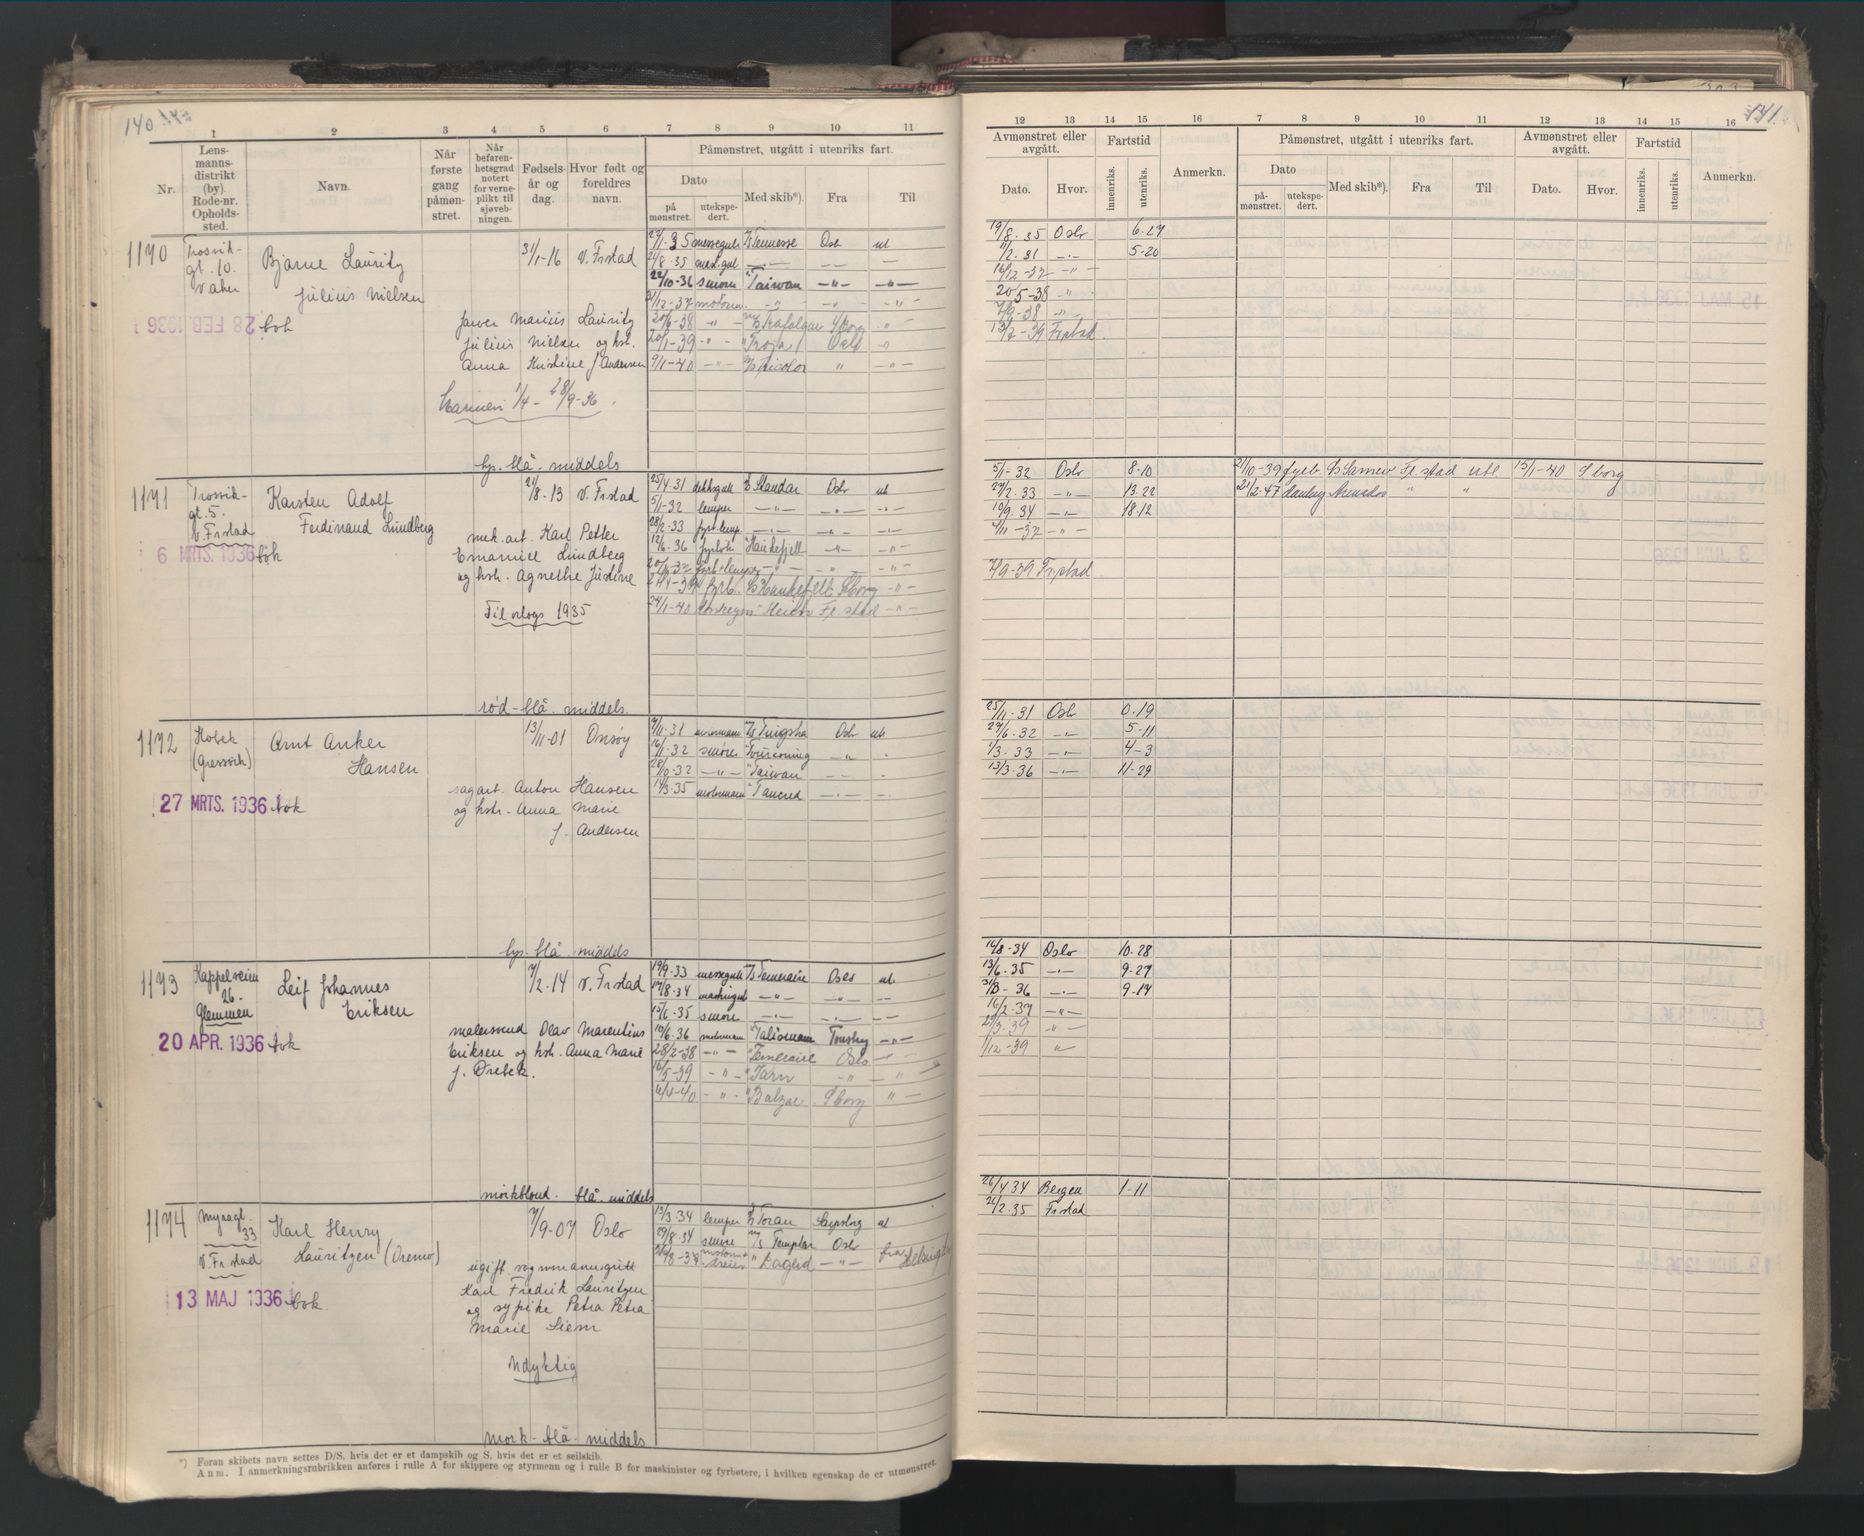 140
1 2 3 4 5 6 7 8 9 10 11
Nr.
Lens-
manns-
distrikt
(by).
Rode-nr.
Opholds-
sted.
Navn.
Når
første
gang
påmøn-
stret.
Når
befaren-
hetsgrad
notert
for verne-
plikt til
sjøveb-
ningen.
Fødsels-
år og
dag.
Hvor født og
foreldres
navn.
Påmønstret, utgått i utenriks fart.
Dato
på
mønstret.
utekspe-
dert.
Med skib*).
Fra
Til
1170
Trosvik-
gt. 10.
V aker
28 FEB. 1936 bok
Bjarne Lauritz
Julius Nielsen
31/1-16 V. Frstad
Marius Lauritz
Julius Nielsen og hst.
Anna Kristine f. Andersen
1/4 - 28/9-36.
lys. blå. middels
27/11-35 messegutt Tennesse Oslo ut
21/8-35
22/10-36 smører Taiwan
31/12-37 motorm.
20/6-38 Trafalgar S borg
20/1-39 Troja Oslo
9/1-40 Tricolor
1171
Trosvik-
gt. 5.
V. Frstad
6 MRTS. 1936 bok
Karsten Adolf
Ferdinand Lundberg
21/8-13 V. Frstad
mek. arb. Karl Petter
Emanuel Lundberg
og hst. Agnethe Justine
Til orlogs 1935
rød-blå. middels.
25/4-31 dekksgutt Oslo ut
5/1-32 lemper
28/2-33 fyrb. lemp.
12/6-36 fyrbøt Haukefjell
20/11-37 fyrb. lemper
24/4-39 fyrb. Haukefjell S borg
24/1-40 Fr stad
1172
Kobek
(Gressvik)
27 MRTS. 1936 bok
Arnt Anker
Hansen
13/11-01 Onsøy
sagarb. Anton Hansen
og hstr. Anna Marie
f. Andersen
lys. blå middels
7/11-31 motormann Tungsha Oslo ut
16/1-32 smører Tourcoing
28/10-32 Taiwan
14/3-35 motormann Tancred
1173
Kappelveien
26.
Glemmen
20 APR. 1936 bok
Leif Johannes
Eriksen
7/2-14 V. Frstad
malersvend Olav Marentius
Eriksen og hst. Anna Marie
f. Ørebek.
mørkblond. blå. middels
19/9-33 messegutt Temeraire Oslo ut
17/8-34 maskingut
15/6-35 smører
10/6-36 motormann Talisman Tønsberg
28/2-38 Temeraire Oslo
16/5-39 Tarn
6/4-40 Balzac S borg
1174
Myragt.
33
V. Frstad
13 MAJ 1936 bok.
Karl Henry
Lauritzen (Oremo)
7/9-07 Oslo
ugift
Karl Fredrik Lauritzen
og sypike Petra Petra
Marie Siem
Udyktig
mørk-blå-middels
13/3-34 lemper Toran Sarpsborg ut
29/8-34 smører Templar Oslo
Daglid fra Helsingør
*) Foran skibets navn settes D/S, hvis det er et dampskib og S, hvis det er et seilskib.
Anm. I anmerkningsrubrikken anføres i rulle A for skippere og styrmenn og i rulle B for maskinister og fyrbøtere, i hvilken egenskap de er utmønstret.
141.
12 13 14 15 16 7 8 9 10 11 12 13 14 15 16
Avmønstret eller
avgått.
Fartstid
Dato.
Hvor.
innenriks.
utenriks.
Anmerkn.
Påmønstret, utgått i utenriks fart.
Dato
på-
mønstret.
utekspe-
dert.
Med skib*).
Fra
Til
Avmønstret eller
avgått.
Fartstid
Dato.
Hvor.
innenriks.
utenriks.
Anmerkn.
19/8-35 Oslo 6-27
5-20
16/12-37
20/5-38
7/9-38
13/2-39 Frstad
5/1-32 Oslo 8-10
27/2-33 13-22
10/9-34 18-12
4/11-37
7/9-39 Frstad
31/10-39 fyrb. Fr. stad utl 13/1-40 S borg
21/2-47
25/11-31 Oslo 0-19
27/6-32 5-11
1/3-33 4-3
13/3-36 11-29
14/8-34 Oslo 10-28
13/6-35 9-27
31/3-36 9-14
16/2-37
27/3-39
1/12-39
26/4-34 Bergen 1-11
21/2-35 Frstad